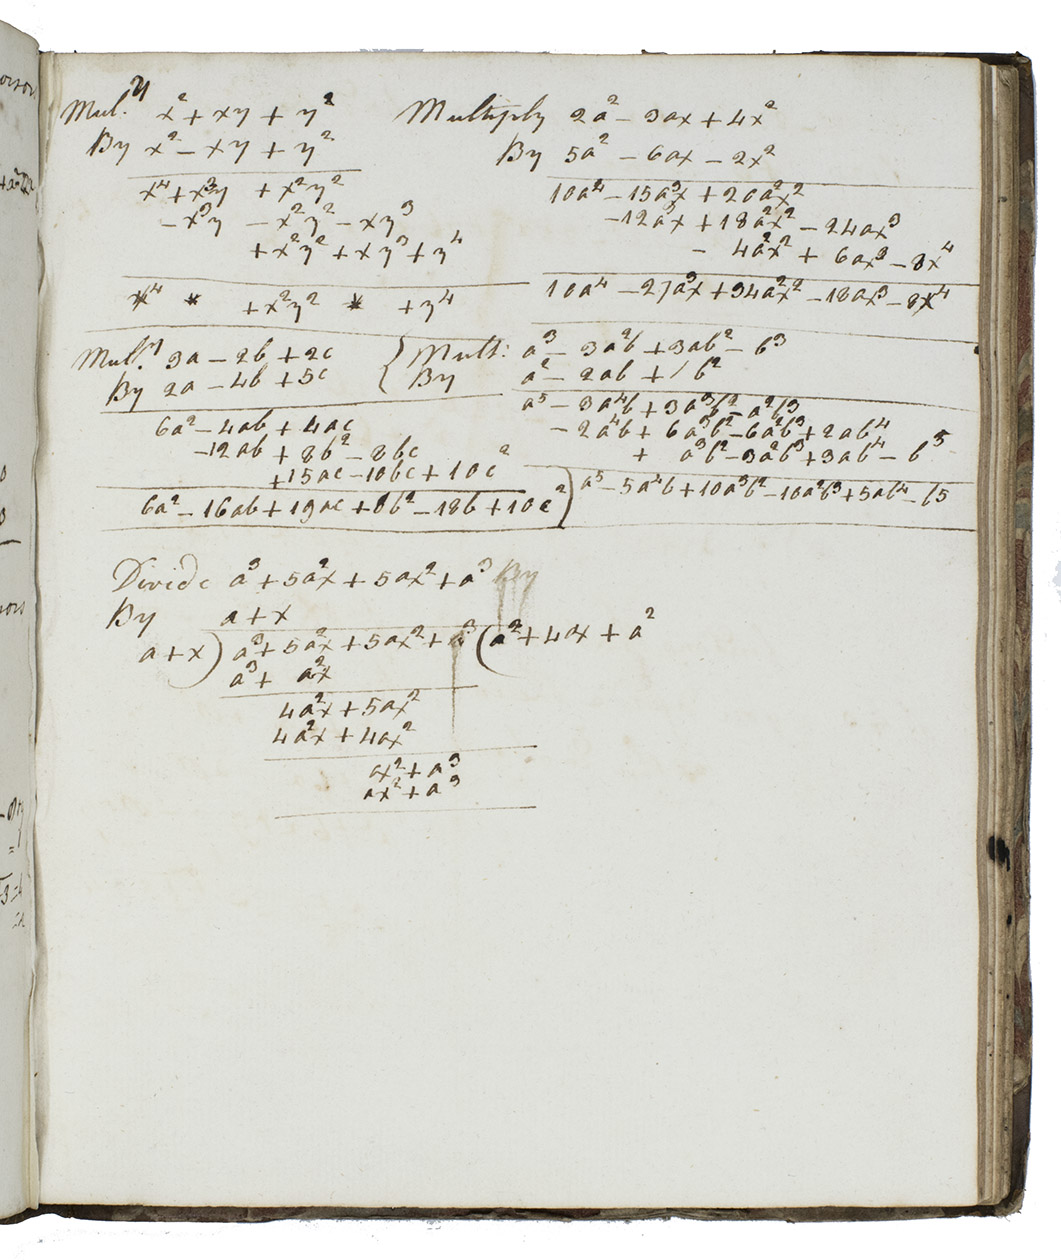 Mul.y x² + xy + y²
By x² - xy + y²
x⁴ + x³y + x²y²
- x³y - x²y² - xy³
+ x²y² + xy³ + y⁴
x⁴ * + x²y² * + y⁴
Multiply 2a² - 3ax + 4x²
By 5a² - 6ax - 2x²
10a⁴ - 15a³x + 20a²x²
-12a³x + 18a²x² - 24ax³
- 4a²x² + 6ax³ - 8x⁴
10a⁴ - 27a³x + 34a²x² - 18ax³ - 8x⁴
Mul.y 3a - 2b + 2c
By 2a - 4b + 5c
6a² - 4ab + 4ac
-12ab + 8b² - 8bc
+ 15ac - 10bc + 10c²
6a² - 16ab + 19ac + 8b² - 18b + 10c²
{ Mult: a³ - 3a²b + 3ab² - b³
By a² - 2ab + b²
a⁵ - 3a⁴b + 3a³b² - a²b3
- 2a⁴b + 6a³b² - 6a²b³ + 2ab⁴
+ a³b² - 3a²b³ + 3ab⁴ - b⁵
) a⁵ - 5a⁴b + 10a³b² - 10a²b³ + 5ab⁴ - b5
Divide a³ + 5a²x + 5ax² + a³ By
By a + x
a + x ) a³ + 5a²x + 5ax² + a³ ( a² + 4ax + a²
a³ + a²x
4a²x + 5ax²
4a²x + 4ax²
ax² + a³
ax² + a³